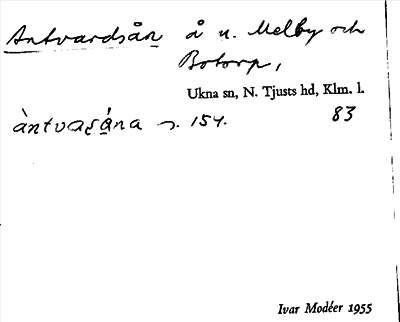 Antvardsån å n. Melby och
Botorp,
Ukna sn, N. Tjusts hd, Klm. l.
àntvaṣá̱na s. 154. 83
Ivar Modéer 1955